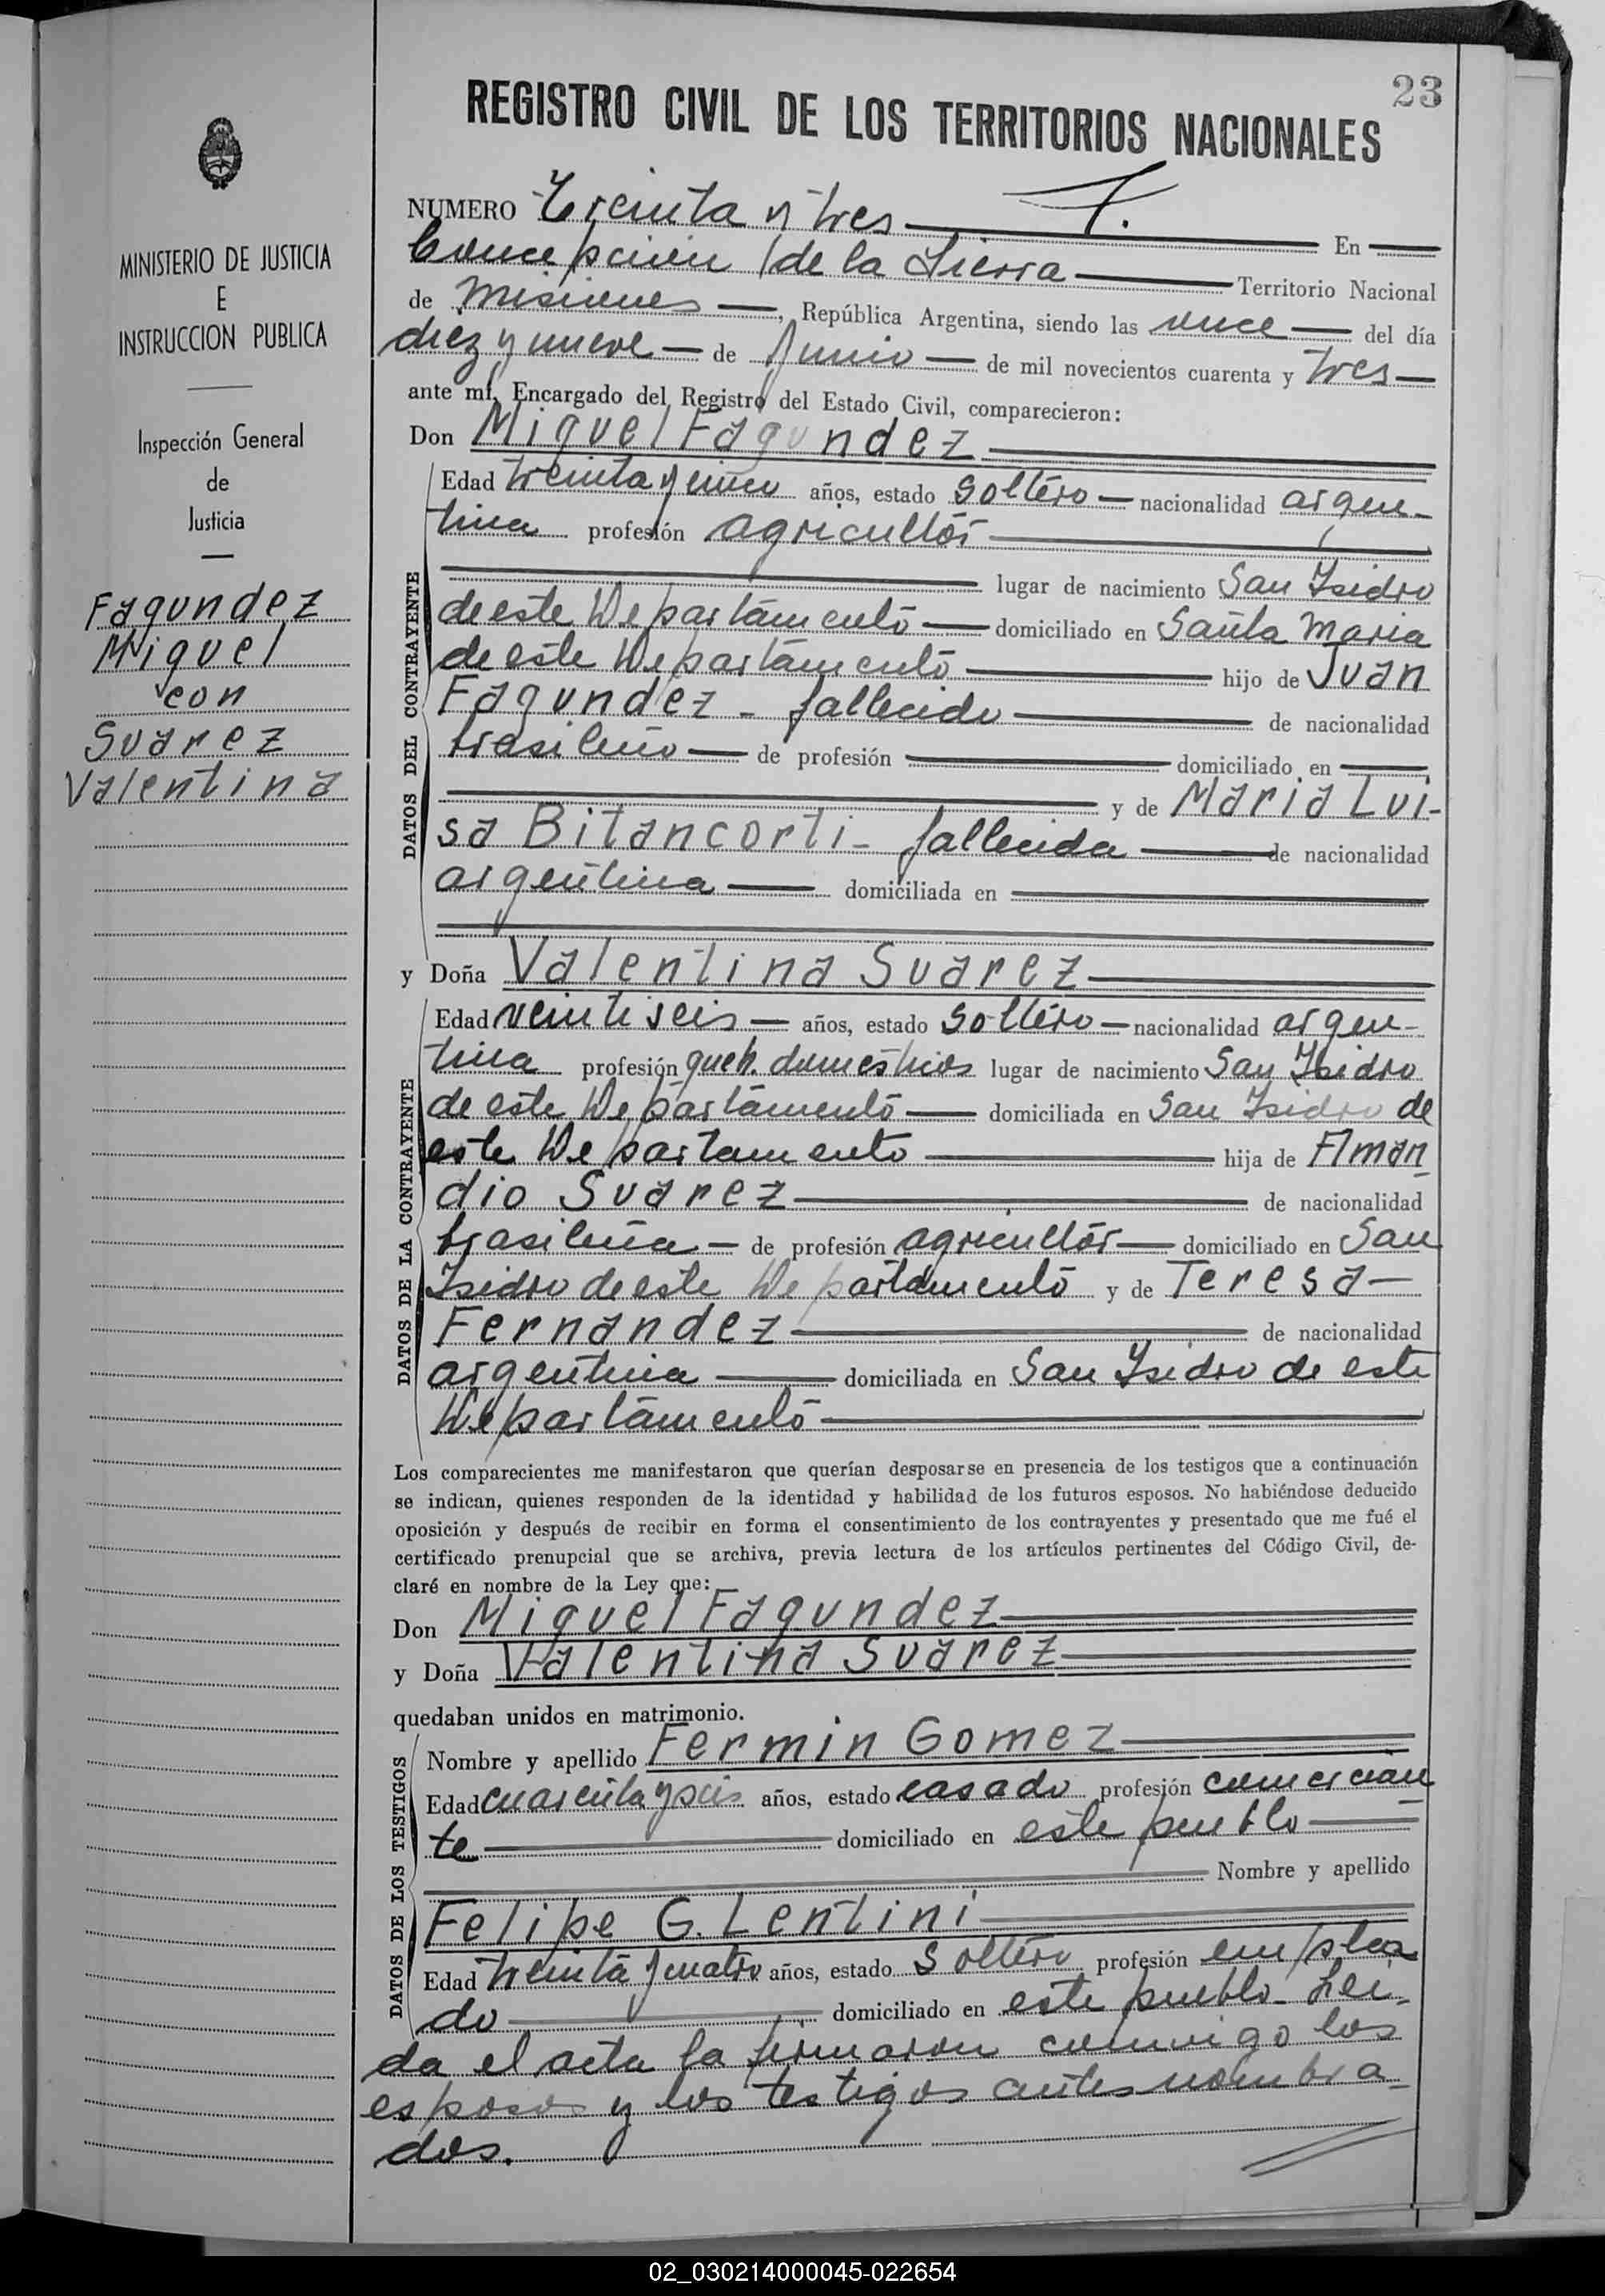 23
REGISTRO CIVIL DE LOS TERRITORIOS NACIONALES
MINISTERIO DE JUSTICIA
E
INSTRUCCION PUBLICA
Inspección General
de
Justicia
Fagundez
Miguel
con
Suarez
Valentina
NUMERO Treinta y tres En
Concepción de la Sierra Territorio Nacional
de Misiones, República Argentina, siendo las once del día
diez y nueve de Junio de mil novecientos cuarenta y tres
ante mí, Encargado del Registro del Estado Civil, comparecieron:
Don Miguel Fagundez
DATOS DEL CONTRAYENTE
Edad treinta y cinco años, estado soltero nacionalidad argen-
tina profesión agricultor
lugar de nacimiento San Isidro
de este Departamento domiciliado en Santa Maria
de este Departamento hijo de Juan
Fagundez - fallecido de nacionalidad
brasileño de profesión domiciliado en
y de Maria Lui-
sa Bitancorti - fallecida de nacionalidad
argentina domiciliada en
y Doña Valentina Suarez
DATOS DE LA CONTRAYENTE
Edad veintiseis años, estado soltero nacionalidad argen-
tina profesión queh. domesticos lugar de nacimiento San Isidro
de este Departamento domiciliada en San Isidro de
este Departamento hija de Aman-
dio Suarez de nacionalidad
brasileña de profesión agricultor domiciliado en San
Isidro de este Departamento y de Teresa
Fernandez de nacionalidad
argentina domiciliada en San Isidro de este
Departamento
Los comparecientes me manifestaron que querían desposarse en presencia de los testigos que a continuación
se indican, quienes responden de la identidad y habilidad de los futuros esposos. No habiéndose deducido
oposición y después de recibir en forma el consentimiento de los contrayentes y presentado que me fué el
certificado prenupcial que se archiva, previa lectura de los artículos pertinentes del Código Civil, de-
claré en nombre de la Ley que:
Don Miguel Fagundez
y Doña Valentina Suarez
quedaban unidos en matrimonio.
DATOS DE LOS TESTIGOS
Nombre y apellido Fermin Gomez
Edad cuarenta y seis años, estado casado profesión comercian-
te domiciliado en este pueblo
Nombre y apellido
Felipe G. Lentini
Edad treinta y cuatro años, estado soltero profesión emplea-
do domiciliado en este pueblo - Lei-
da el acta la firmaron conmigo los
esposos y los testigos antes nombra-
dos.
02_030214000045-022654